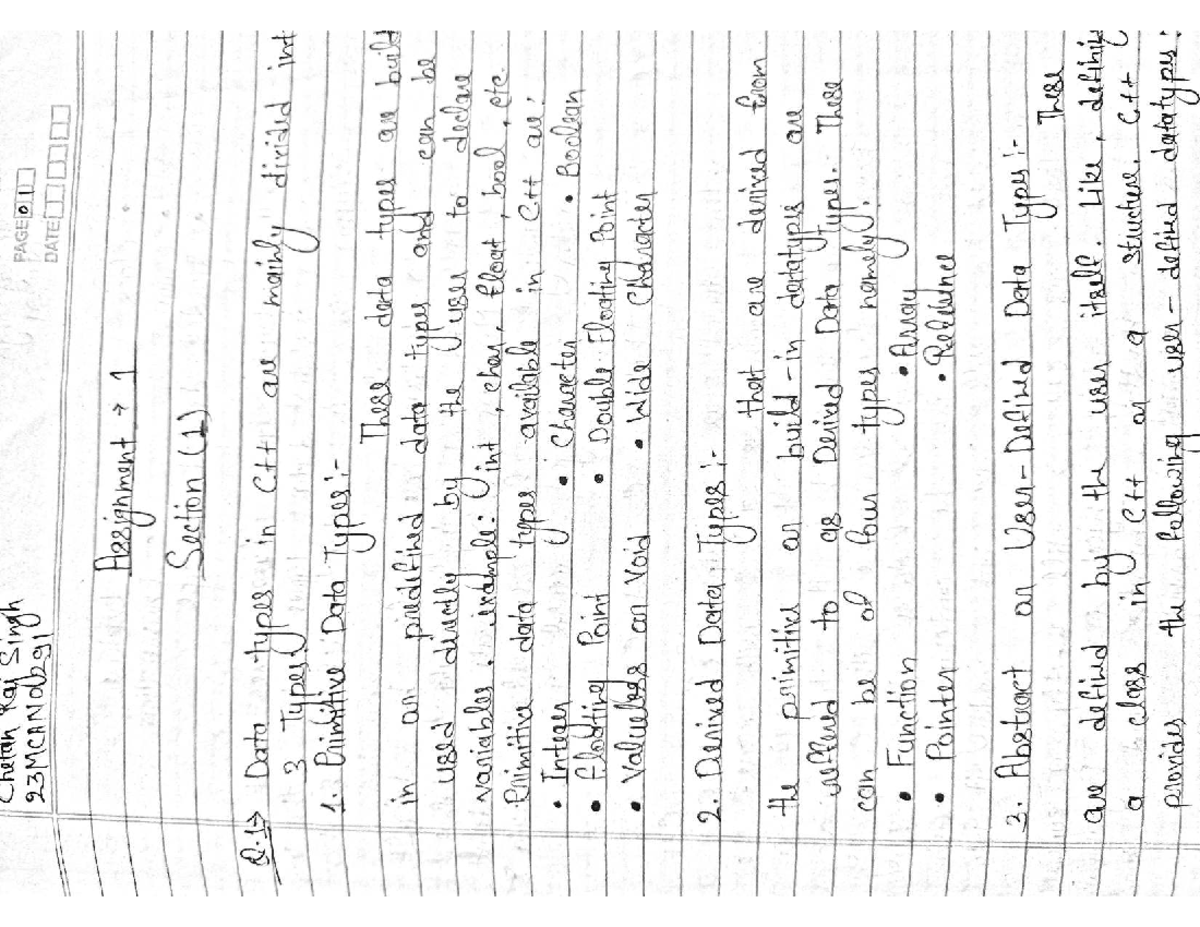 Chetan Raj Singh
23MCAN0b291
PAGE 01
DATE
Assignment → 1
Section (1)
Q.1> Data types in C++ are mainly divided int
3 Types
1. Primitive Data Types:-
These data types are built
in or predefined data types and can be
used directly by the user to declare
variables. example: int, char, float, bool, etc.
Primitive data types available in C++ are,
• Integer • Character • Boolean
• Floating Point • Double Floating Point
• Valueless or Void • Wide Character
2. Derived Data Types:-
that are derived from
the primitive or build-in datatypes are
reffered to as Derived Data Types. These
can be of four types namely:
• Function • Array
• Pointer • Reference
3. Abstract or User-Defined Data Types:-
These
are defined by the user itself. Like, defining
a class in C++ or a structure. C++
provides the following user-defined datatypes: